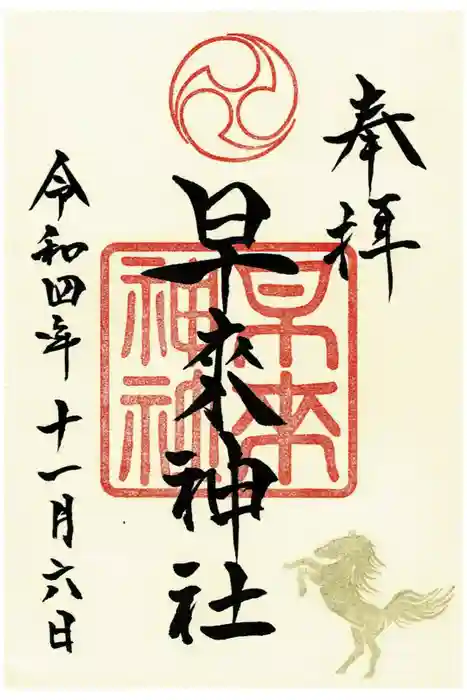 奉拝
早來神社
早来神社
令和四年十一月六日